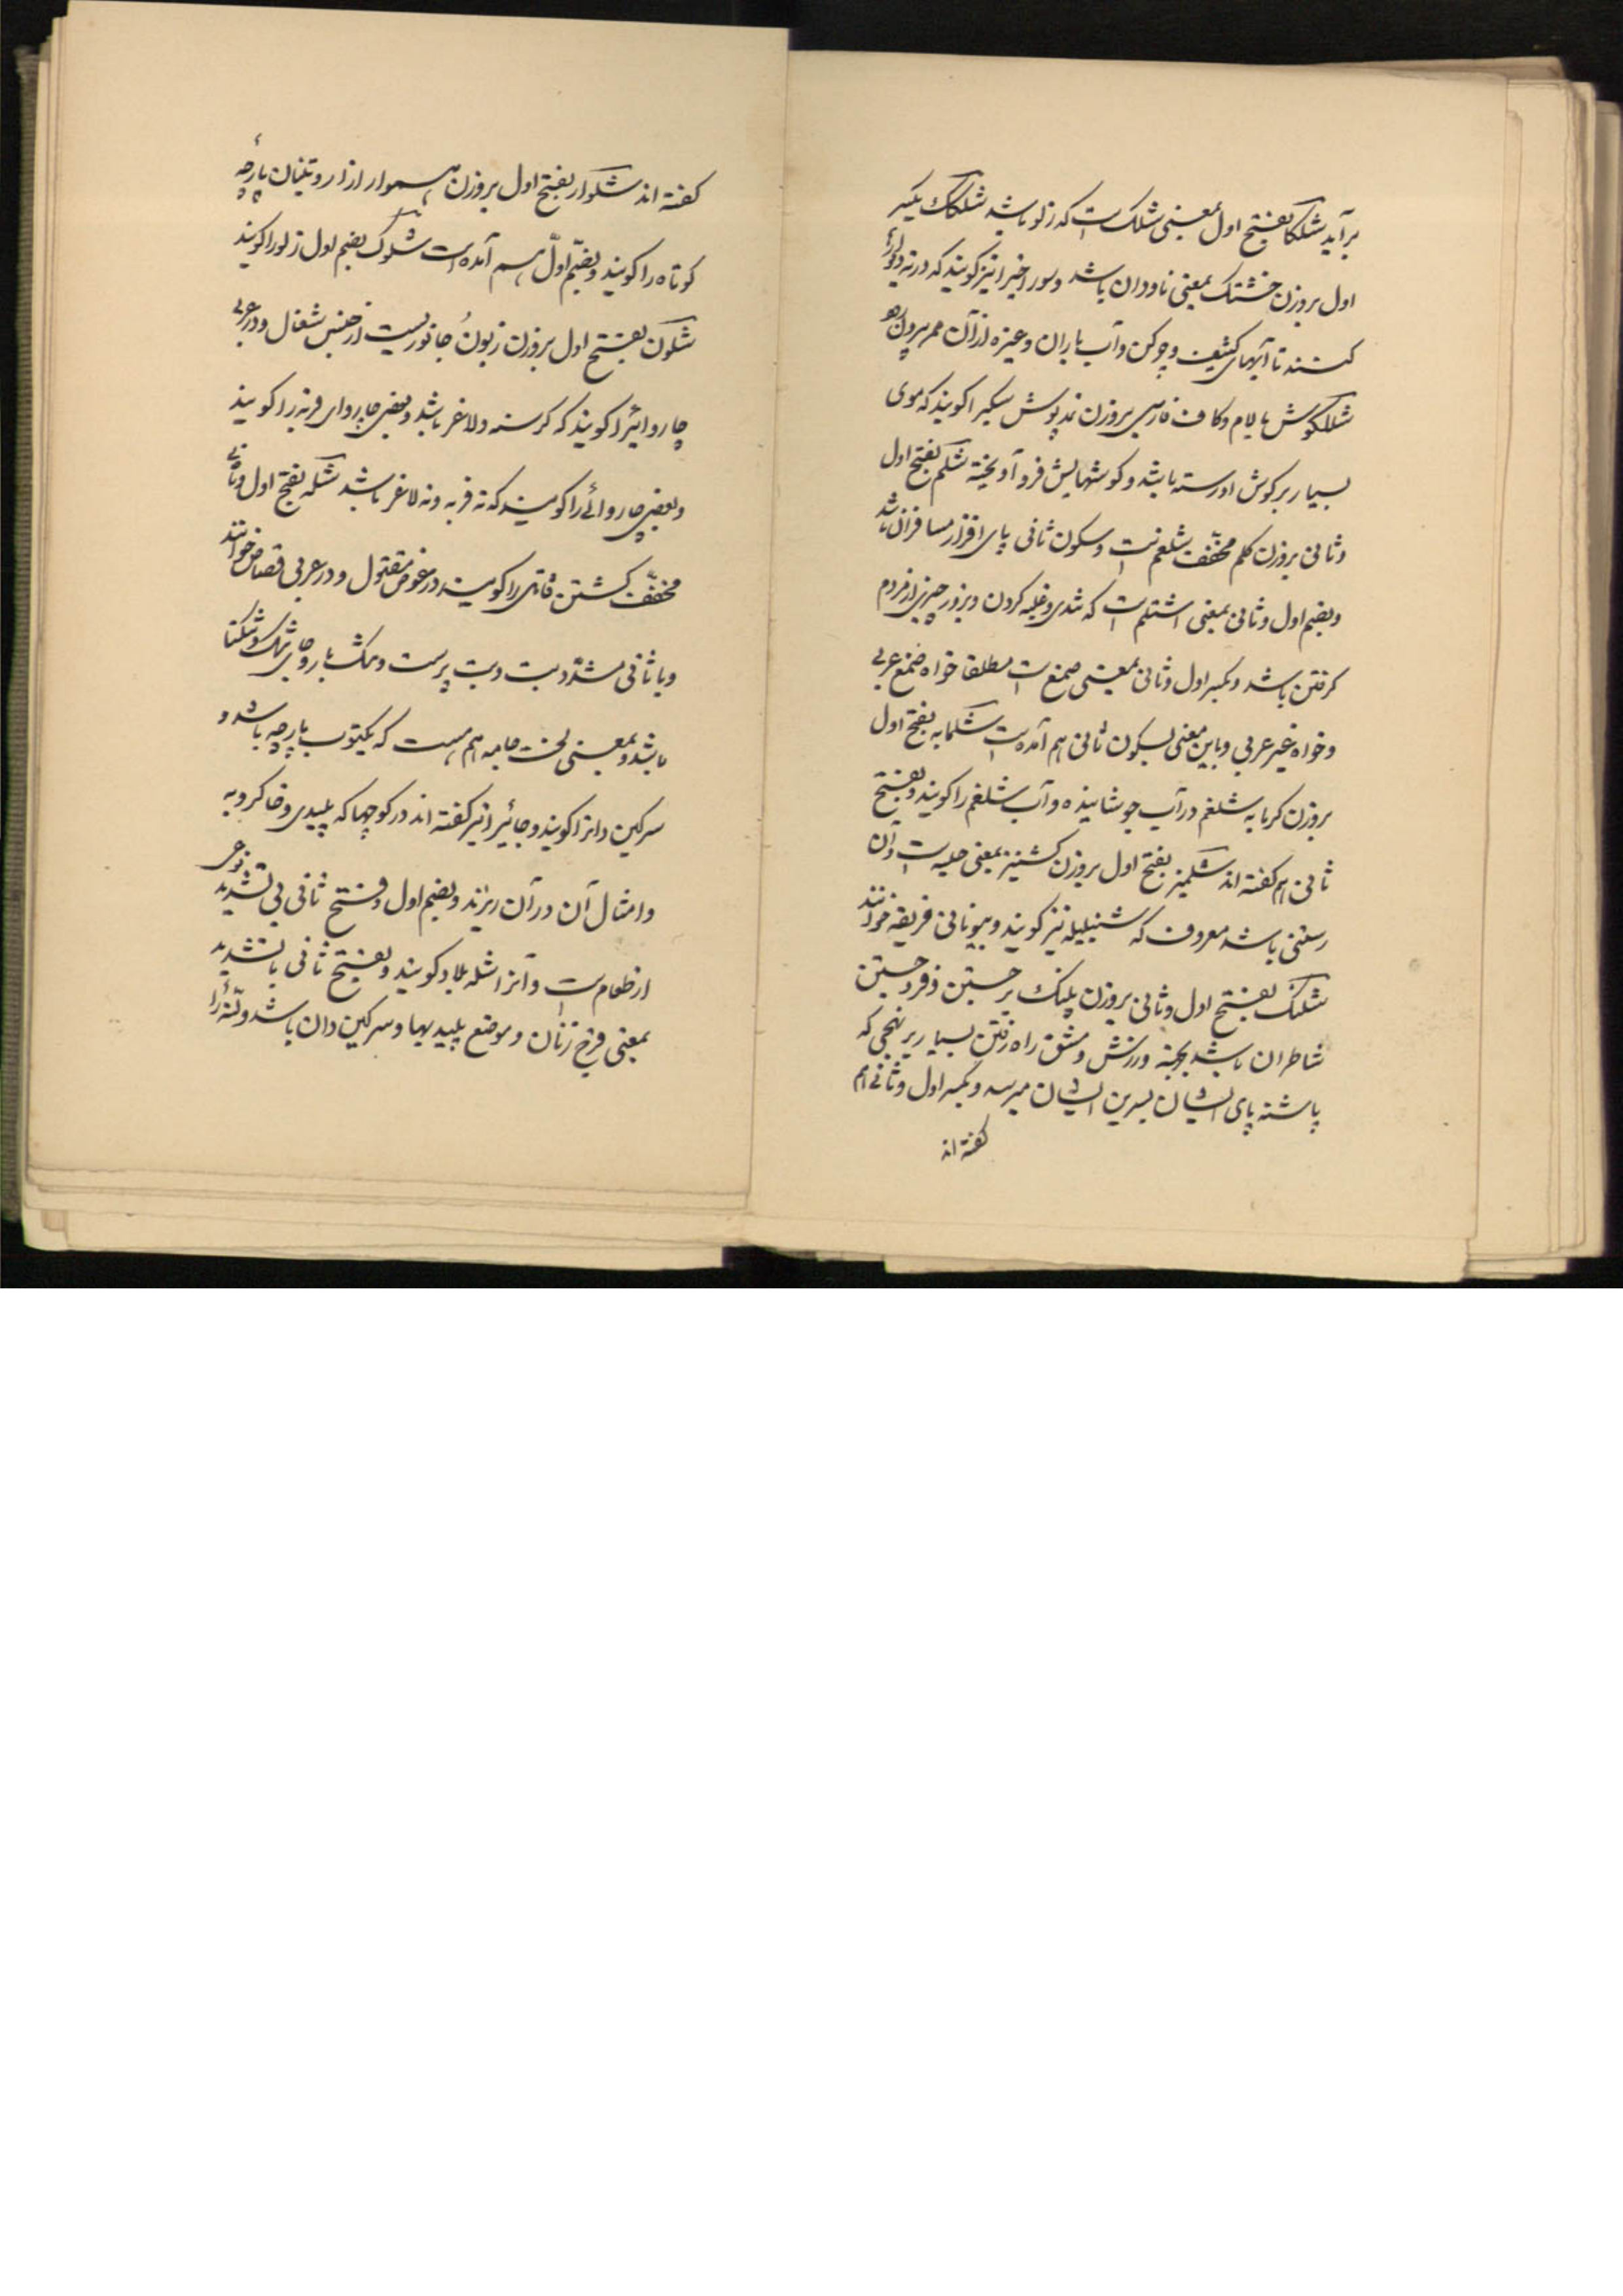 برآید شلکا بفتح اول بمعنی شلک است که زلو باشد شلکک بکسر
اول بروزن خشتک بمعنی ناودان باشد وسوراخیرا نیز کویند که در ته دیوارها
کنند تا آبهای کثیف و چرکن و آب باران وغیره از آن ممر بیرون رود
شلکوش بالام وکاف فارسی بروزن نمدپوش سکیرا کویند که موی
بسیار بر کوش او رسته باشد و کوشهایش فرو آویخته شلم بفتح اول
و ثانی بروزن کلم مخفف شلغم است و بسکون ثانی پای افزار مسافران باشد
وبضم اول وثانی بمعنی اشتلم است که تندی وغلبه کردن وبزور چیزی از مردم
کرفتن باشد وبکسر اول وثانی بمعنی صمغ است مطلقا خواه صمغ عربی
وخواه غیر عربی وباین معنی بسکون ثانی هم آمده است شلمابه بفتح اول
بروزن کرمابه شلغم در آب جوشانیده و آب شلغم را کویند وبفتح
ثانی هم کفته اند شلمیز بفتح اول بروزن کشنیز بمعنی حلبه است و آن
رستنی باشد معروف که شنبلیله نیز کویند و بیونانی فریقه خوانند
شلنک بفتح اول وثانی بروزن پلنک برجستن و فروجستن
شاطران باشد بجهة ورزش و مشق راه رفتن بسیار بر نهجی که
پاشنه پای ایشان بسرین ایشان میرسد وبکسر اول وثانی هم
کفته اند
کفته اند شلوار بفتح اول بروزن هموار ازار و تنبان پارچه
کوتاه را کویند وبضم اول هم آمده است شلوک بضم اول زلو را کویند
شلون بفتح اول بروزن زبون جانوریست از جنس شغال و در عربی
چاروائیرا کویند که کرسنه و لاغر باشد وبعضی چاروای فربه را کویند
وبعضی چاروائی را کویند که نه فربه ونه لاغر باشد شله بفتح اول وثانی
مخفف کشتن قاتل را کویند در عوض مقتول و در عربی قصاص خوانند
وبا ثانی مشدد بت وبت پرست و
باشد وبمعنی لخت جامه هم هست که یکتوب پارچه باشد و
سرکین دانرا کویند وجائیرا نیز کفته اند در کوچها که پلیدی وخاکروبه
وامثال آن در آن ریزند وبضم اول وفتح ثانی بی تشدید نوعی
از طعام است و آنرا شله پلاو کویند وبفتح ثانی با تشدید
بمعنی فرج زنان وموضع پلیدیها وسرکین دان باشد